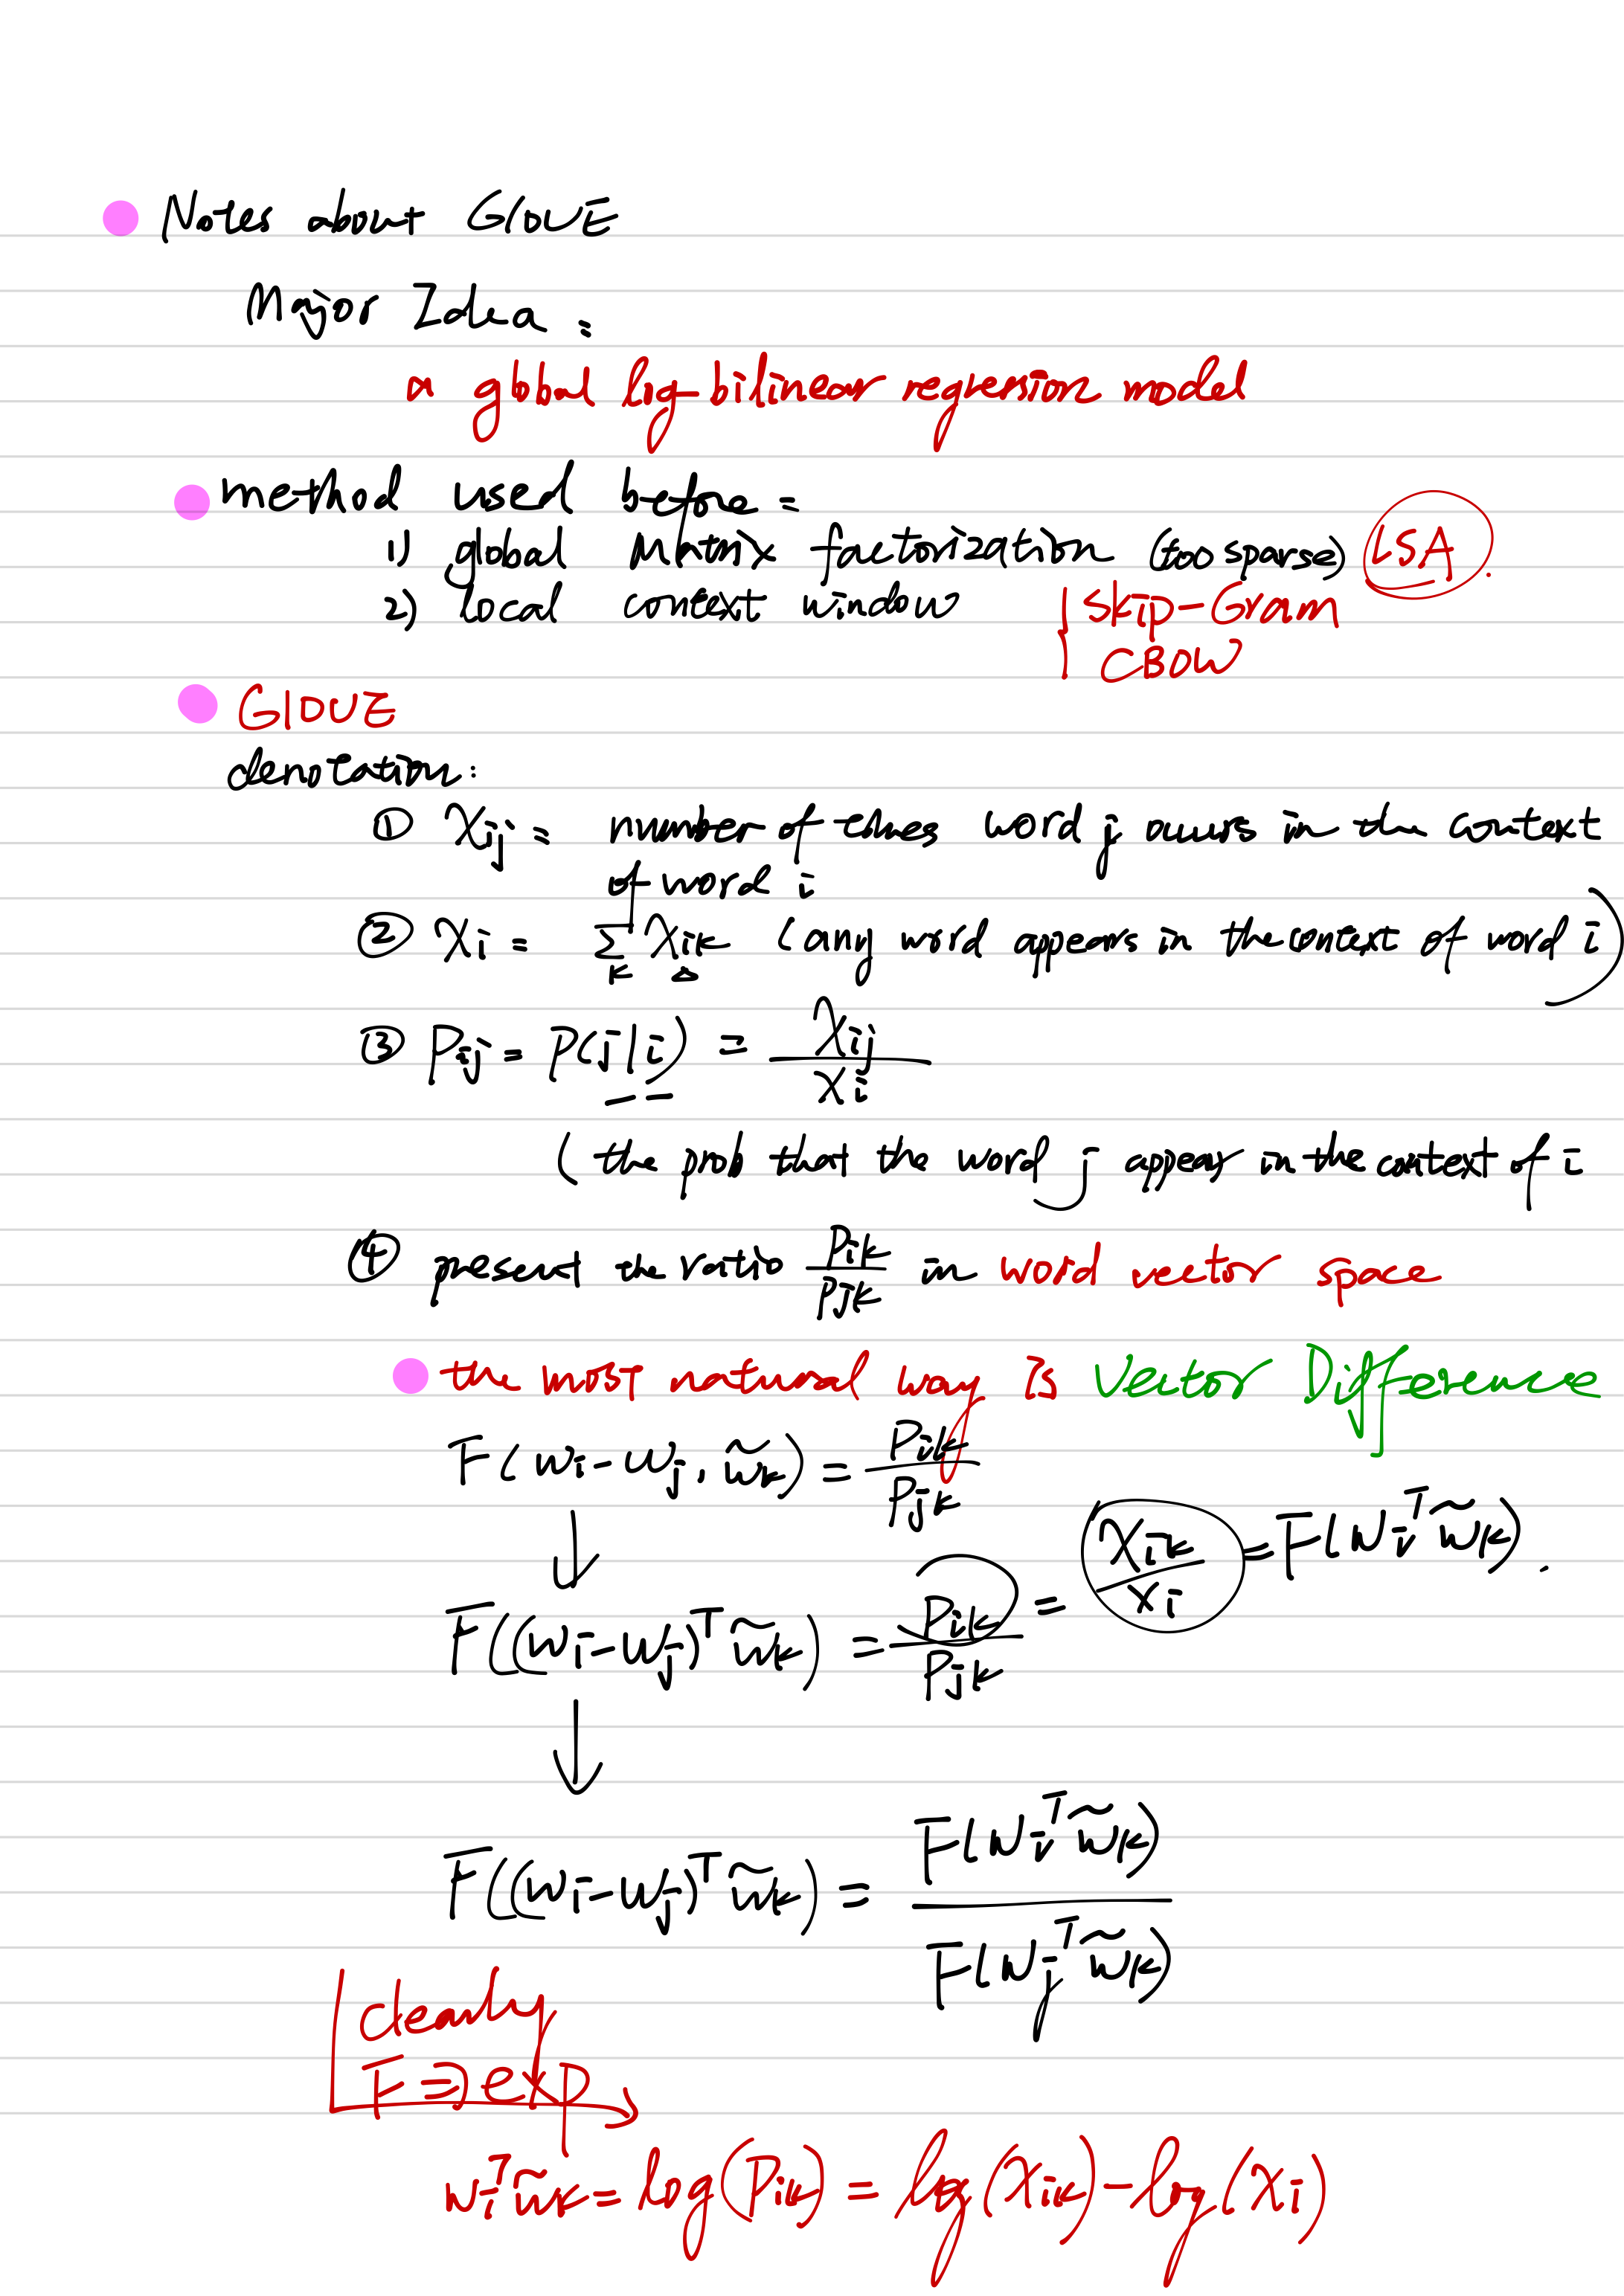 Notes about GloVE
Major Idea:
a global log-bilinear regression model
method used before:
1) global Matrix factorization (too sparse) LSA.
2) local context window { Skip-Gram
CBOW
GloVE
denotation:
① Xij = number of times word j occurs in the context
of word i
② Xi = ∑k Xik (any word appears in the context of word i)
③ Pij = P(j|i) = Xij / Xi
( the prob that the word j appear in the context of i
④ present the ratio Pik / Pjk in word vector space
the most natural way Is Vector Difference
F(wi - wj, w̃k) = Pik / Pjk
↓
F((wi - wj)ᵀ w̃k) = Pik / Pjk = Xik / Xi = F(wiᵀ w̃k).
↓
F((wi - wj)ᵀ w̃k) = F(wiᵀ w̃k) / F(wjᵀ w̃k)
clearly
F ⇒ exp
wiᵀ w̃k = log(Pik) = log(Xik) - log(Xi)